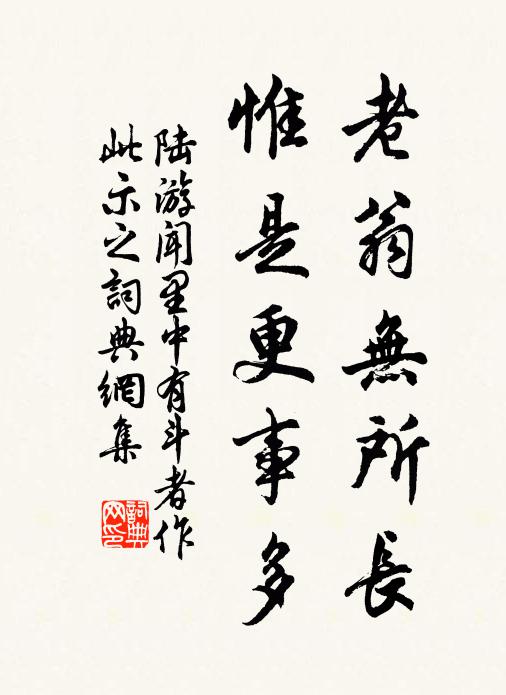 老翁無所長
惟是更事多
陸游聞里中有斗者作
此示之詞典網集
詞典
网印